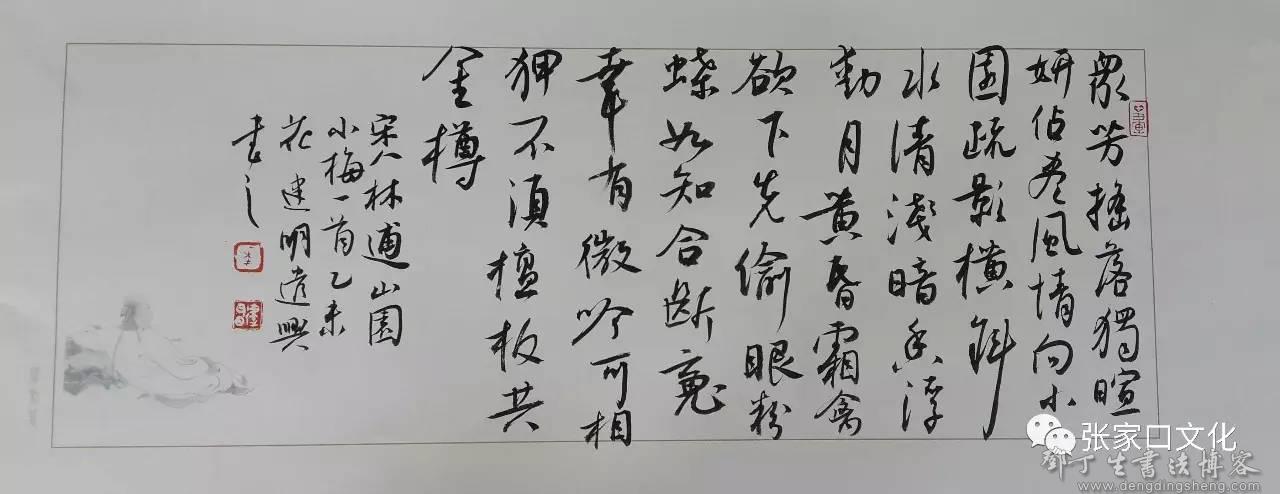 眾芳搖落獨暄
妍佔盡風情向小
園疏影橫斜
水清淺暗香浮
動月黃昏霜禽
欲下先偷眼粉
蝶如知合斷魂
幸有微吟可相
狎不須檀板共
金樽
宋人林逋山園
小梅一首乙未
花建明遣興
書之
张家口文化
鄧丁生書法博客
www.dengdingsheng.com